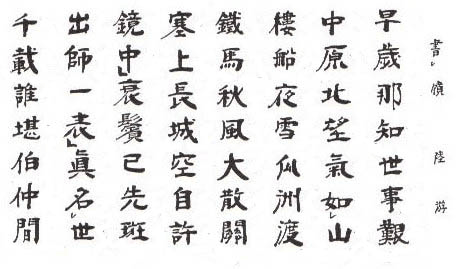 書憤 陸游
早歲那知世事艱
中原北望氣如山
樓船夜雪瓜洲渡
鐵馬秋風大散關
塞上長城空自許
鏡中衰鬢已先斑
出師一表真名世
千載誰堪伯仲間